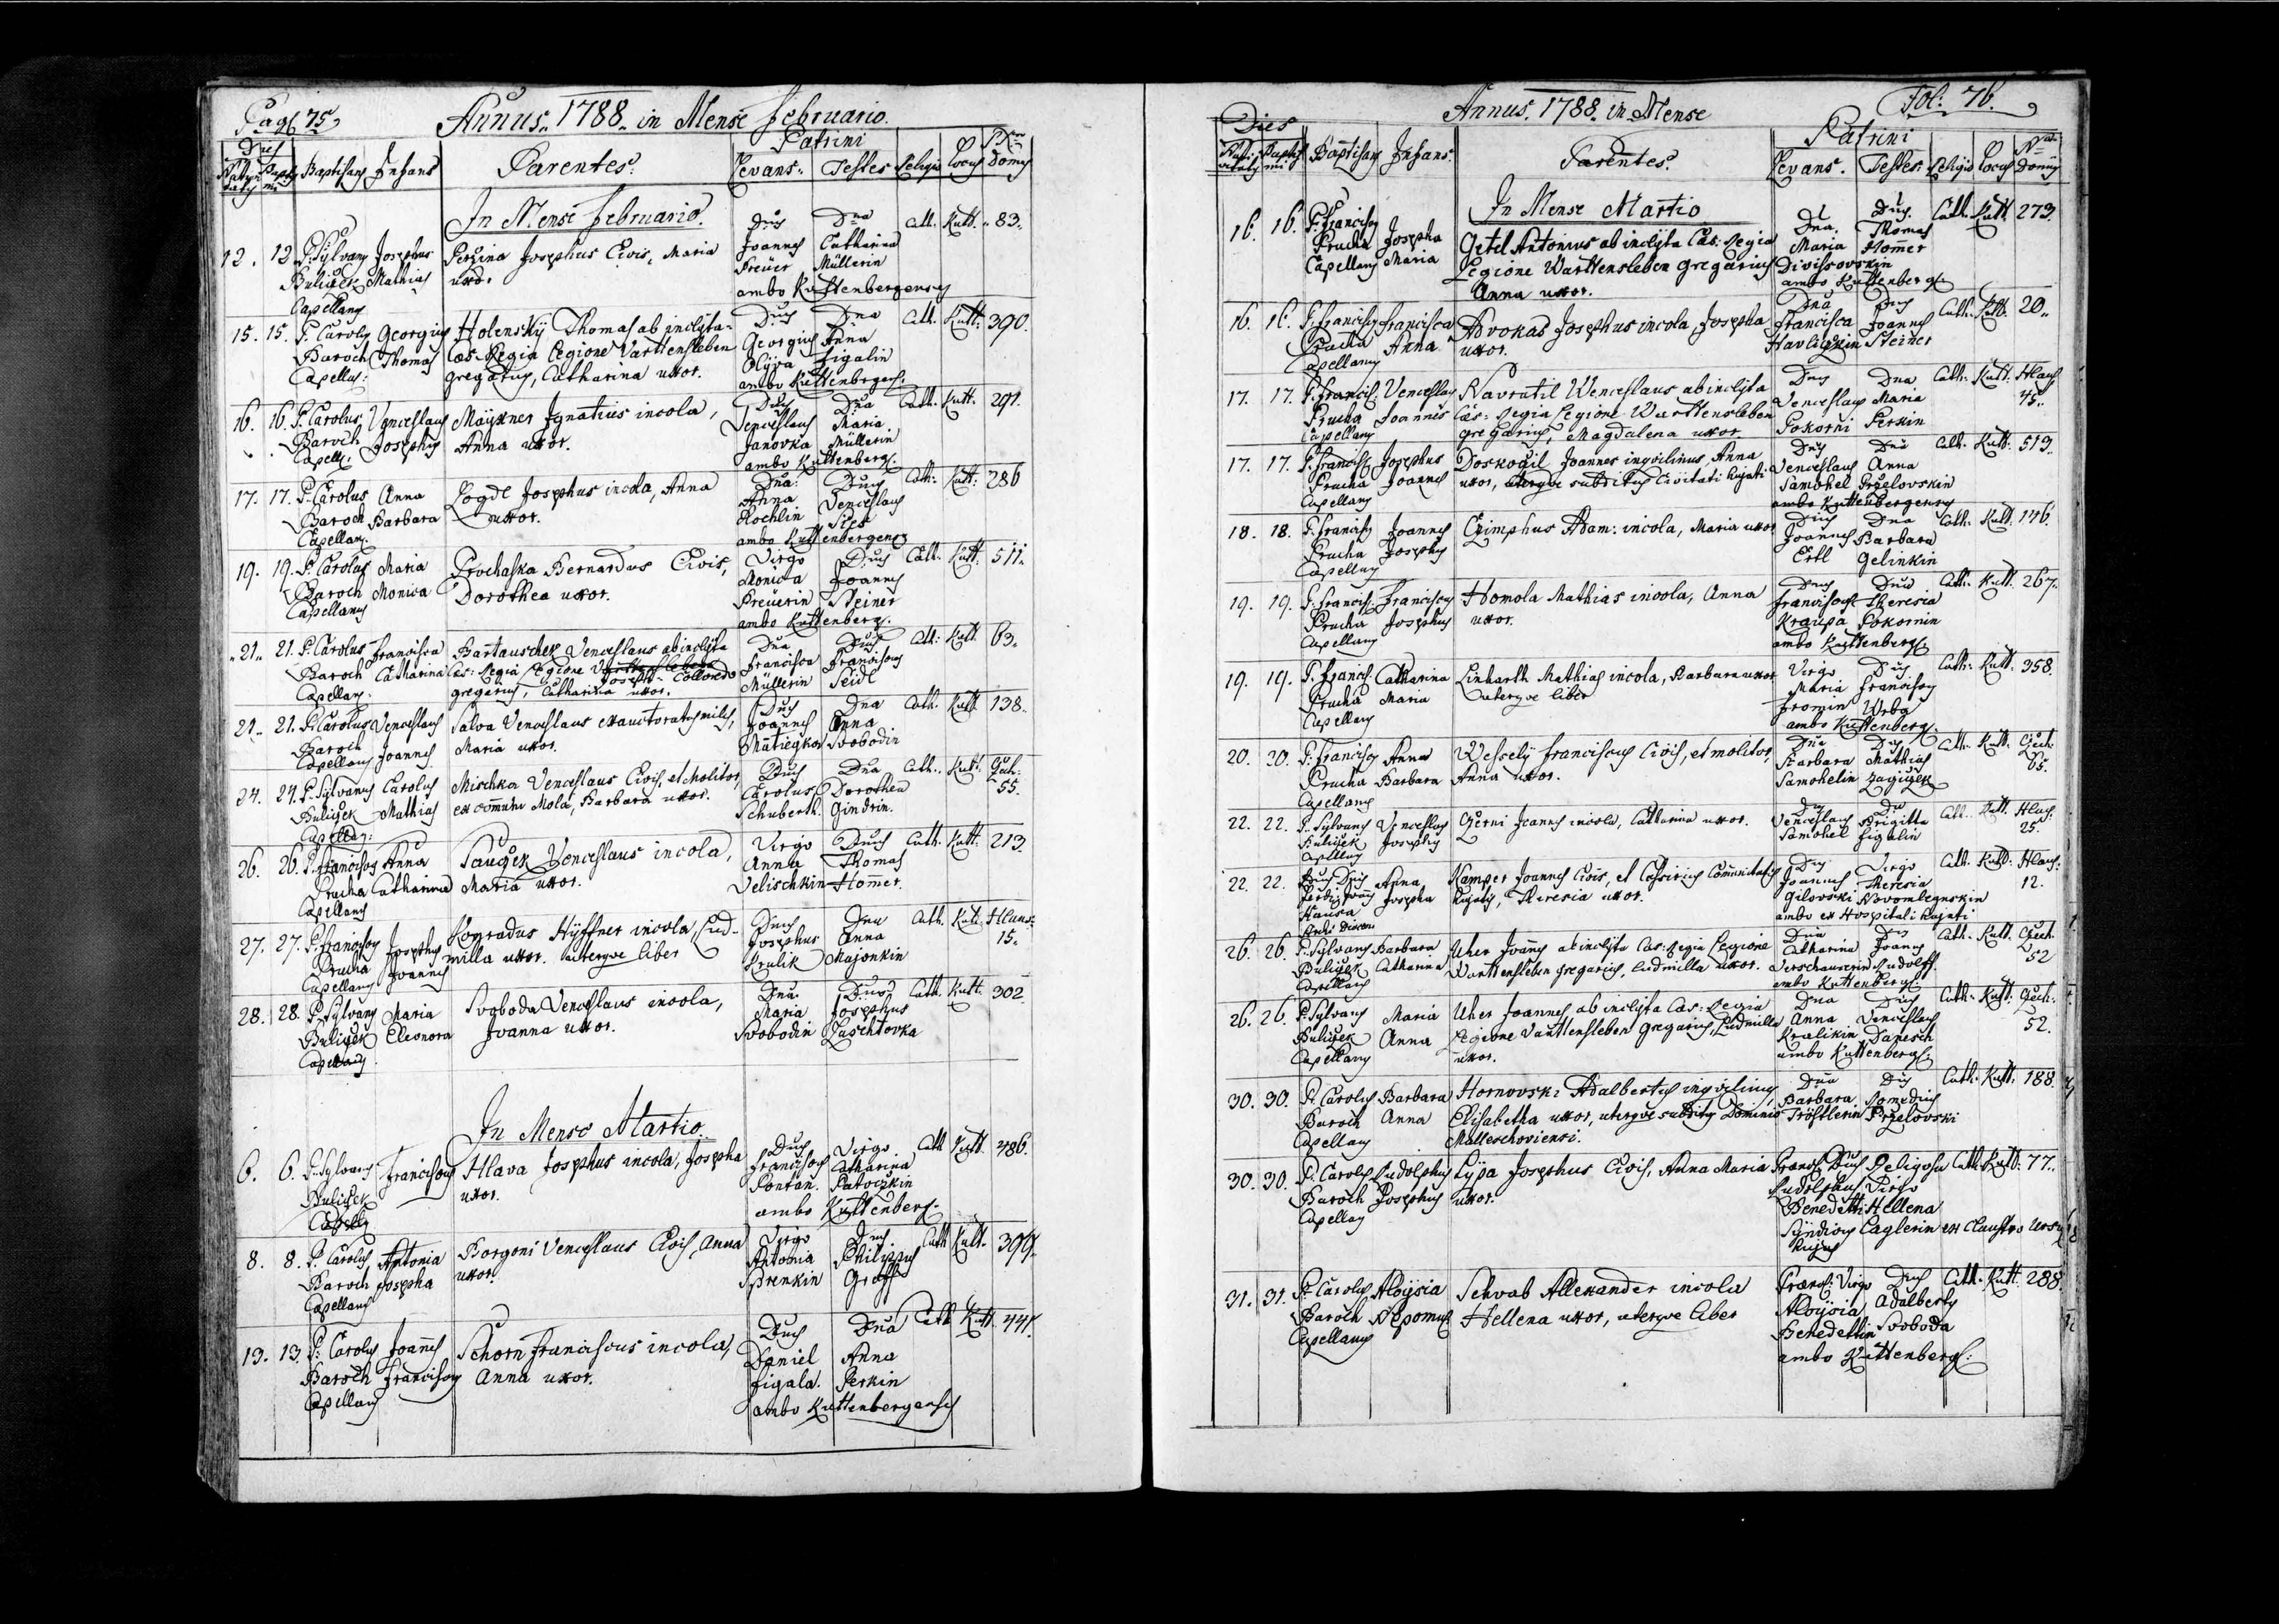 Pag. 75
Annus. 1788. in Mense februario.
Dies
Patrini
Baptisans Infans
Parentes.
Levans. Testes Religio Locus Domus
In Mense februario.
12. 12 P. Sylvany Josephus Mathias
Pežina Josephus Civis, Maria
uxor
Joannes Catharina
Müllerin
ambo Kuttenbergenses
Cath. Kutt. 83.
Capellany
15. 15. P. Caroly Georgius
Baroch Thomas
Capellus:
Holenský Thomas ab inclyta
Cæs. Regia Legione Varttensleben
gregarius, Catharina uxor.
Dnus Dna
Georgius Anna
Figalin
ambo Kuttenbergens:
Cath. Kutt. 390.
16. 16. P. Carolus Venceslaus
Baroch Josephus
Capell:
Maÿxner Ignatius incola,
Anna uxor.
Dnus Dna
Venceslaus Maria
Janovka Müllerin
ambo Kuttenberg:
Cath. Kutt. 291.
17. 17. P. Carolus Anna
Baroch Barbara
Capellan.
Josephus incola, Anna
uxor.
Dna Dnus
Anna Venceslaus
Kochlin
ambo Kuttenbergens
Cath. Kutt. 286
19. 19. P. Carolus Maria
Baroch Monica
Capellanus
Prochaska Bernardus Civis,
Dorothea uxor.
Virgo Dnus
Monica Joannes
Steiner
ambo Kuttenberg.
Cath. Kutt. 511.
21. 21. P. Carolus Francisca
Baroch Catharina
Capellan.
Bartauschek Venceslaus ab inclyta
Cæs: Regia Legione
Joseph Colloredo
gregarius, Catharina uxor.
Dna Dnus
Francisca Franciscus
Müllerin Seidl
Cath. Kutt. 63.
21. 21. P. Carolus Venceslaus
Baroch Joannes
Capellany
Salva Venceslaus exauctoratus miles,
Maria uxor.
Dnus Dna
Joannes Anna
Matiegka Svobodin
Cath. Kutt. 138.
24. 24. P. Sylvanus Carolus
Mathias
Mischka Venceslaus Civis, et Molitor,
ex communi Mola, Barbara uxor.
Dnus Dna
Carolus Dorothea
Schuberth. Gindrin.
Cath. Kutt. 55.
26. 26. P. Franciscus Anna
Prucha Catharina
Capellanus
Venceslaus incola,
Maria uxor.
Virgo Dnus
Anna Thomas
Velischkin Hom̄er.
Cath. Kutt. 213
27. 27. P. Franciscus Josephus
Prucha Joannes
Capellany
Konradus Hÿffner incola, Lud-
milla uxor. uterque liber
Dnus Dna
Josephus Anna
Kralik Majonkin
Cath. Kutt. 15.
28. 28 P. Sylvany Maria
Eleonora
Capellany
Svoboda Venceslaus incola,
Joanna uxor.
Dna Dnus
Maria Josephus
Svobodin Laschtovka
Cath. Kutt. 302.
In Mense Martio.
6. 6. P. Sylvany Franciscus
Hlava Josephus incola, Josepha
uxor.
Dnus Virgo
Franciscus Catharina
Fontan. Patoczkin
ambo Kuttenberg.
Cath Kutt 486.
8. 8. P. Carolus Antonia
Baroch Josepha
Capellany
Borgoni Venceslaus Civis, Anna
uxor.
Virgo Dnus
Antonia Philippus
Cath Kutt.
13. 13. P. Carolus Joannes
Baroch Franciscus
Capellany
Schorn Franciscus incola,
Anna uxor.
Dnus Dna
Daniel Anna
Figala. Perkin
ambo Kuttenbergenses
Cath Kutt. 441.
Fol. 76.
Annus. 1788. in Mense
Dies
Patrini
Baptisans Infans.
Parentes.
Levans. Testes Religio Locus
In Mense Martio
16. 16. P. Franciscus Josepha
Prucha Maria
Capellany
Getel Antonius ab inclyta Cæs: Regia
Legione Warttensleben gregarius
Anna uxor.
Dna. Dnus.
Maria Thomas
Divissovskin Hom̄er
ambo Kuttenberg.
Cath. Kutt. 273.
16. 16. P. Franciscus Francisca
Prucha Anna
Capellanus
Advokad Josephus incola, Josepha
uxor.
Dna Dnus
Francisca Joannes
Havliczkin Steiner
Cath. Kutt. 20.
17. 17. P. Francis. Venceslaus
Prucha Joannes
Capellany
Navratil Wenceslaus ab inclyta
Cæs: Regia Legione Warttensleben
gregarius, Magdalena uxor.
Dnus Dna
Venceslaus Maria
Pokorni Perkin
Cath. Kutt. 45.
17. 17. P. Francisc. Josephus
Prucha Joannes
Capellany
Doskočil Joannes inquilinus, Anna
uxor, uterque subditus Civitati hujati
Dnus Dna
Venceslaus Anna
Samohel Przelovskin
ambo Kuttenbergenses
Cath. Kutt. 513.
18. 18. P. Francis Joannes
Prucha Josephus
Capellany
Adam: incola, Maria uxor
Dnus Dna
Joannes Barbara
Ertl Gelinkin
Cath. Kutt. 146.
19. 19. P. Francis. Franciscus
Prucha Josephus
Capellany
Homola Mathias incola, Anna
uxor.
Dnus Dna
Franciscus Theresia
Kraupa Pokornin
ambo Kuttenberg.
Cath: Kutt. 267.
19. 19. P. Francis. Catharina
Prucha Maria
Capellany
Linharth Mathias incola, Barbara uxor
uterque liber
Virgo Dnus
Maria Franciscus
Fromin Urba
ambo Kuttenberg.
Cath: Kutt. 358.
20. 20. P. Franciscus Anna
Prucha Barbara
Capellany
Wessely Franciscus Civis, et molitor,
Anna uxor.
Dna Dnus
Barbara Mathias
Samohelin
Cath. Kutt. 65.
22. 22. P. Sylvany Venceslaus
Josephus
Capellany
Joannes incola, Catharina uxor.
Venceslaus Brigitta
Samohel Figalin
Cath. Kutt. 25.
22. 22. Anna
Josepha
Kamper Joannes Civis, et
hujatis, Theresia uxor.
Dnus Virgo
Joannes Theresia
Gilovski Novomlegnskin
ambo ex Hospitali hujati
Cath. Kutt: 12.
26. 26. P. Sylvany Barbara
Catharina
Capellany
Uher Joannes ab inclyta Cæs: Regia Legione
Varttensleben gregarius, Ludmilla uxor.
Dna Dnus
Catharina Joannes
Verschauserin Rudolff.
ambo Kuttenberg.
Cath. Kutt. 52
26. 26. P. Sylvany Maria
Anna
Capellany
Uher Joannes ab inclyta Cæs: Regia
Legione Varttensleben gregarius, Ludmilla
uxor.
Dna Dnus
Anna Venceslaus
Kralikin Danesch
ambo Kuttenberg.
Cath. Kutt. 52.
30. 30. P. Carolus Barbara
Baroch Anna
Capellany
Hornovski Adalbertus inquilinus,
Elisabetha uxor, uterque subditus Dominio
Malleschoviensi.
Dna Dnus
Barbara Romedius
Tröstlerin Przelovski
Cath. Kutt. 188.
30. 30. P. Carolus Rudolphus
Baroch Josephus
Capellany
Lÿsa Josephus Civis, Anna Maria
uxor.
Dnus Religiosa
Rudolphus Virgo
Benedetti Hellena
Sÿndicus Laglerin ex Claustro
hujus
Cath. Kutt. 77.
31. 31. P. Carolus Aloÿsia
Baroch
Capellany
Schvab Allexander incola
Hellena uxor, uterque liber
Virgo Dnus
Aloÿsia Adalbertus
Benedettin Svoboda
ambo Kuttenberg.
Cath. Kutt. 288.